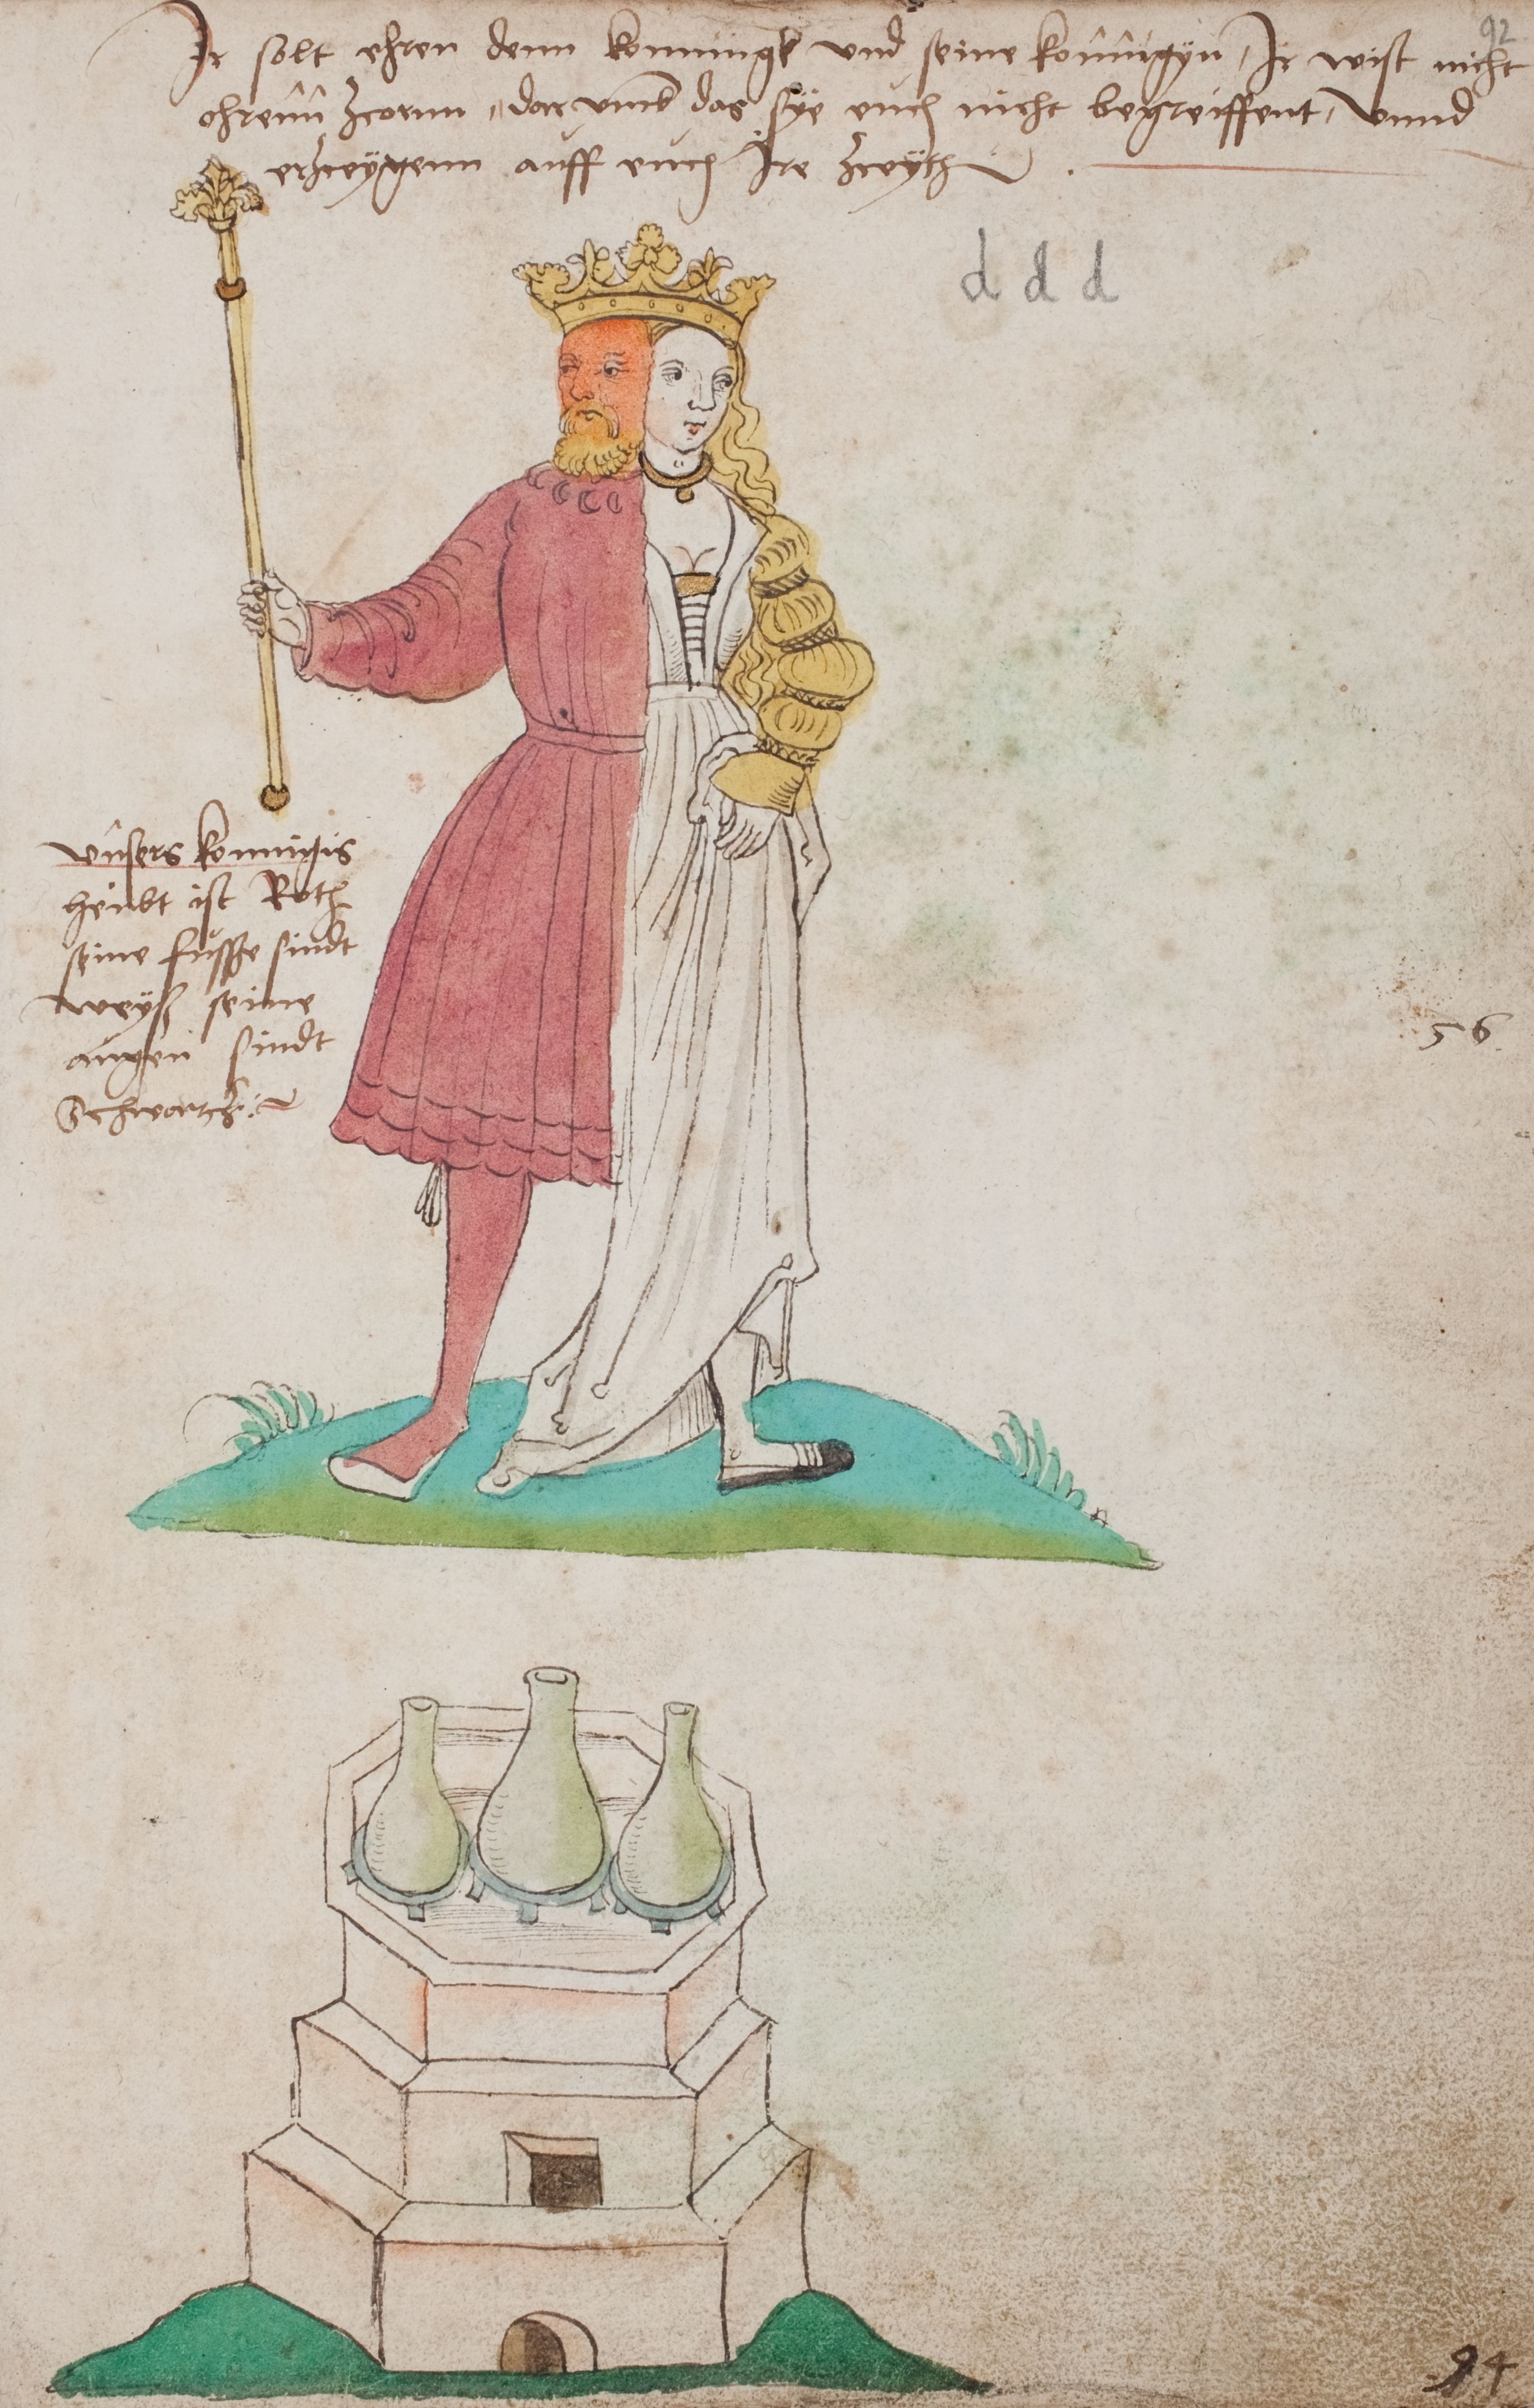 92
Ir solt ehren denn konningk und seine konnigyn, Ir wist nicht
ohrenn zcornn, darumb das sye euch nicht begreiffent, vnnd
erzceygenn auff euch Ire zceyth
d d d
vnsers konnigis
heubt ist Roth
seine fusße sindt
weyß seine
augen sindt
Schwartz
56
94